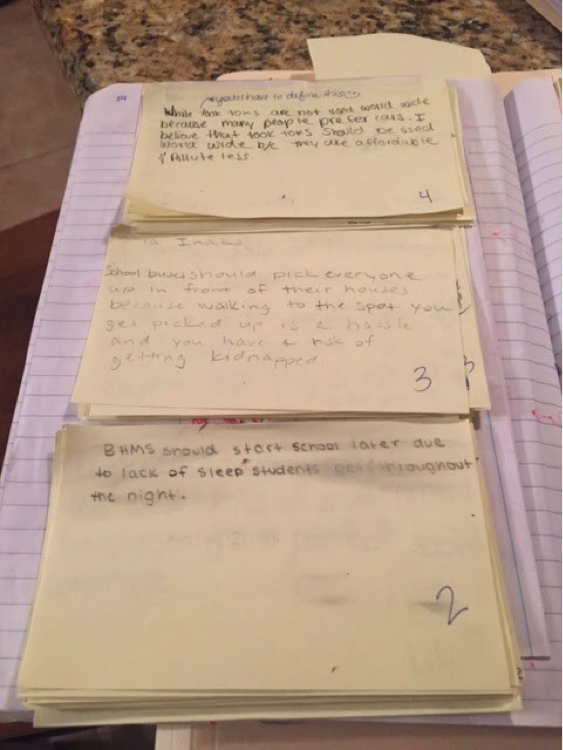 you'll have to define this
While took toks are not used world wide
because many people prefer cars. I
believe that took toks should be used
world wide b/c they are affordable
& Pollute less
4
School buses should pick everyone
up in front of their houses
because walking to the spot you
get picked up is a hassle
and you have a risk of
getting kidnapped
3
BHMS should start school later due
to lack of sleep students get throughout
the night.
2